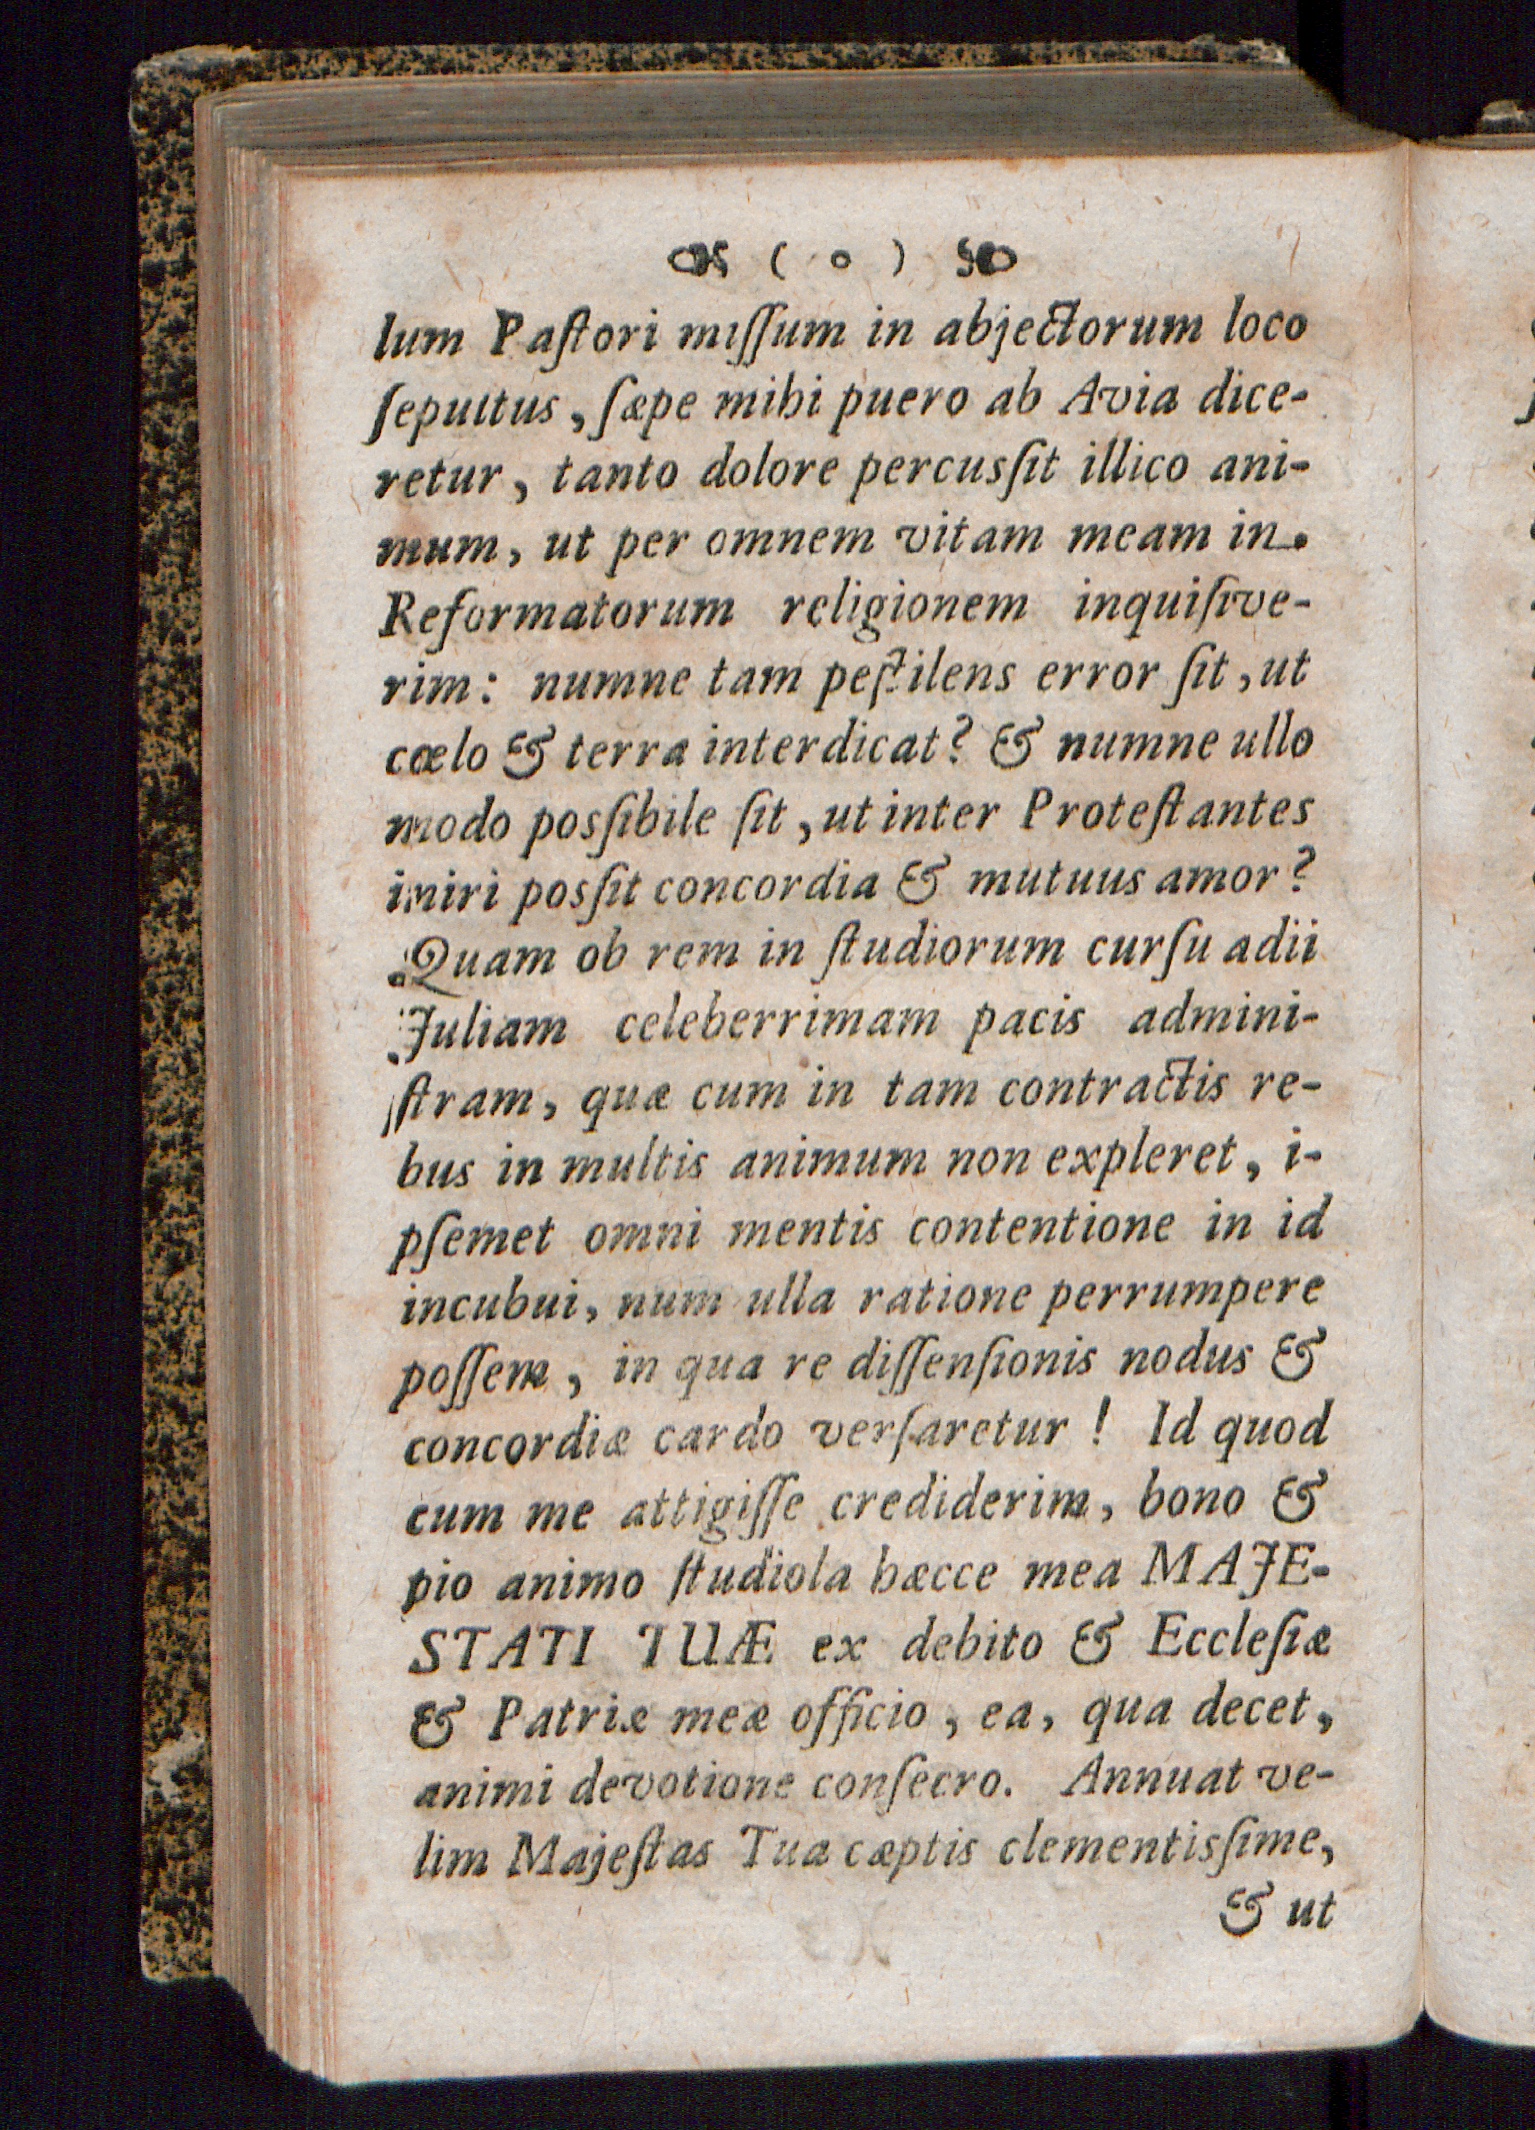 ( o )
lum Paſtori miſſum in abjectorum loco
ſepultus, ſæpe mihi puero ab Avia dice-
retur, tanto dolore percusſit illico ani-
mum, ut per omnem vitam meam in.
Reformatorum religionem inquiſive-
rim: numne tam peſtilens error ſit, ut
cœlo & terra interdicat? & numne ullo
modo posſibile ſit, ut inter Proteſtantes
iniri posſit concordia & mutuus amor?
Quam ob rem in ſtudiorum curſu adii
Juliam celeberrimam pacis admini-
ſtram, quæ cum in tam contractis re-
bus in multis animum non expleret, i-
pſemet omni mentis contentione in id
incubui, num ulla ratione perrumpere
poſſem, in qua re diſſenſionis nodus &
concordiæ cardo verſaretur! Id quod
cum me attigiſſe crediderim, bono &
pio animo ſtudiola hæcce mea MAJE-
STATI TUÆ ex debito & Eccleſiæ
& Patriæ meæ officio, ea, qua decet,
animi devotione conſecro. Annuat ve-
lim Majeſtas Tua cæptis clementisſime,
& ut